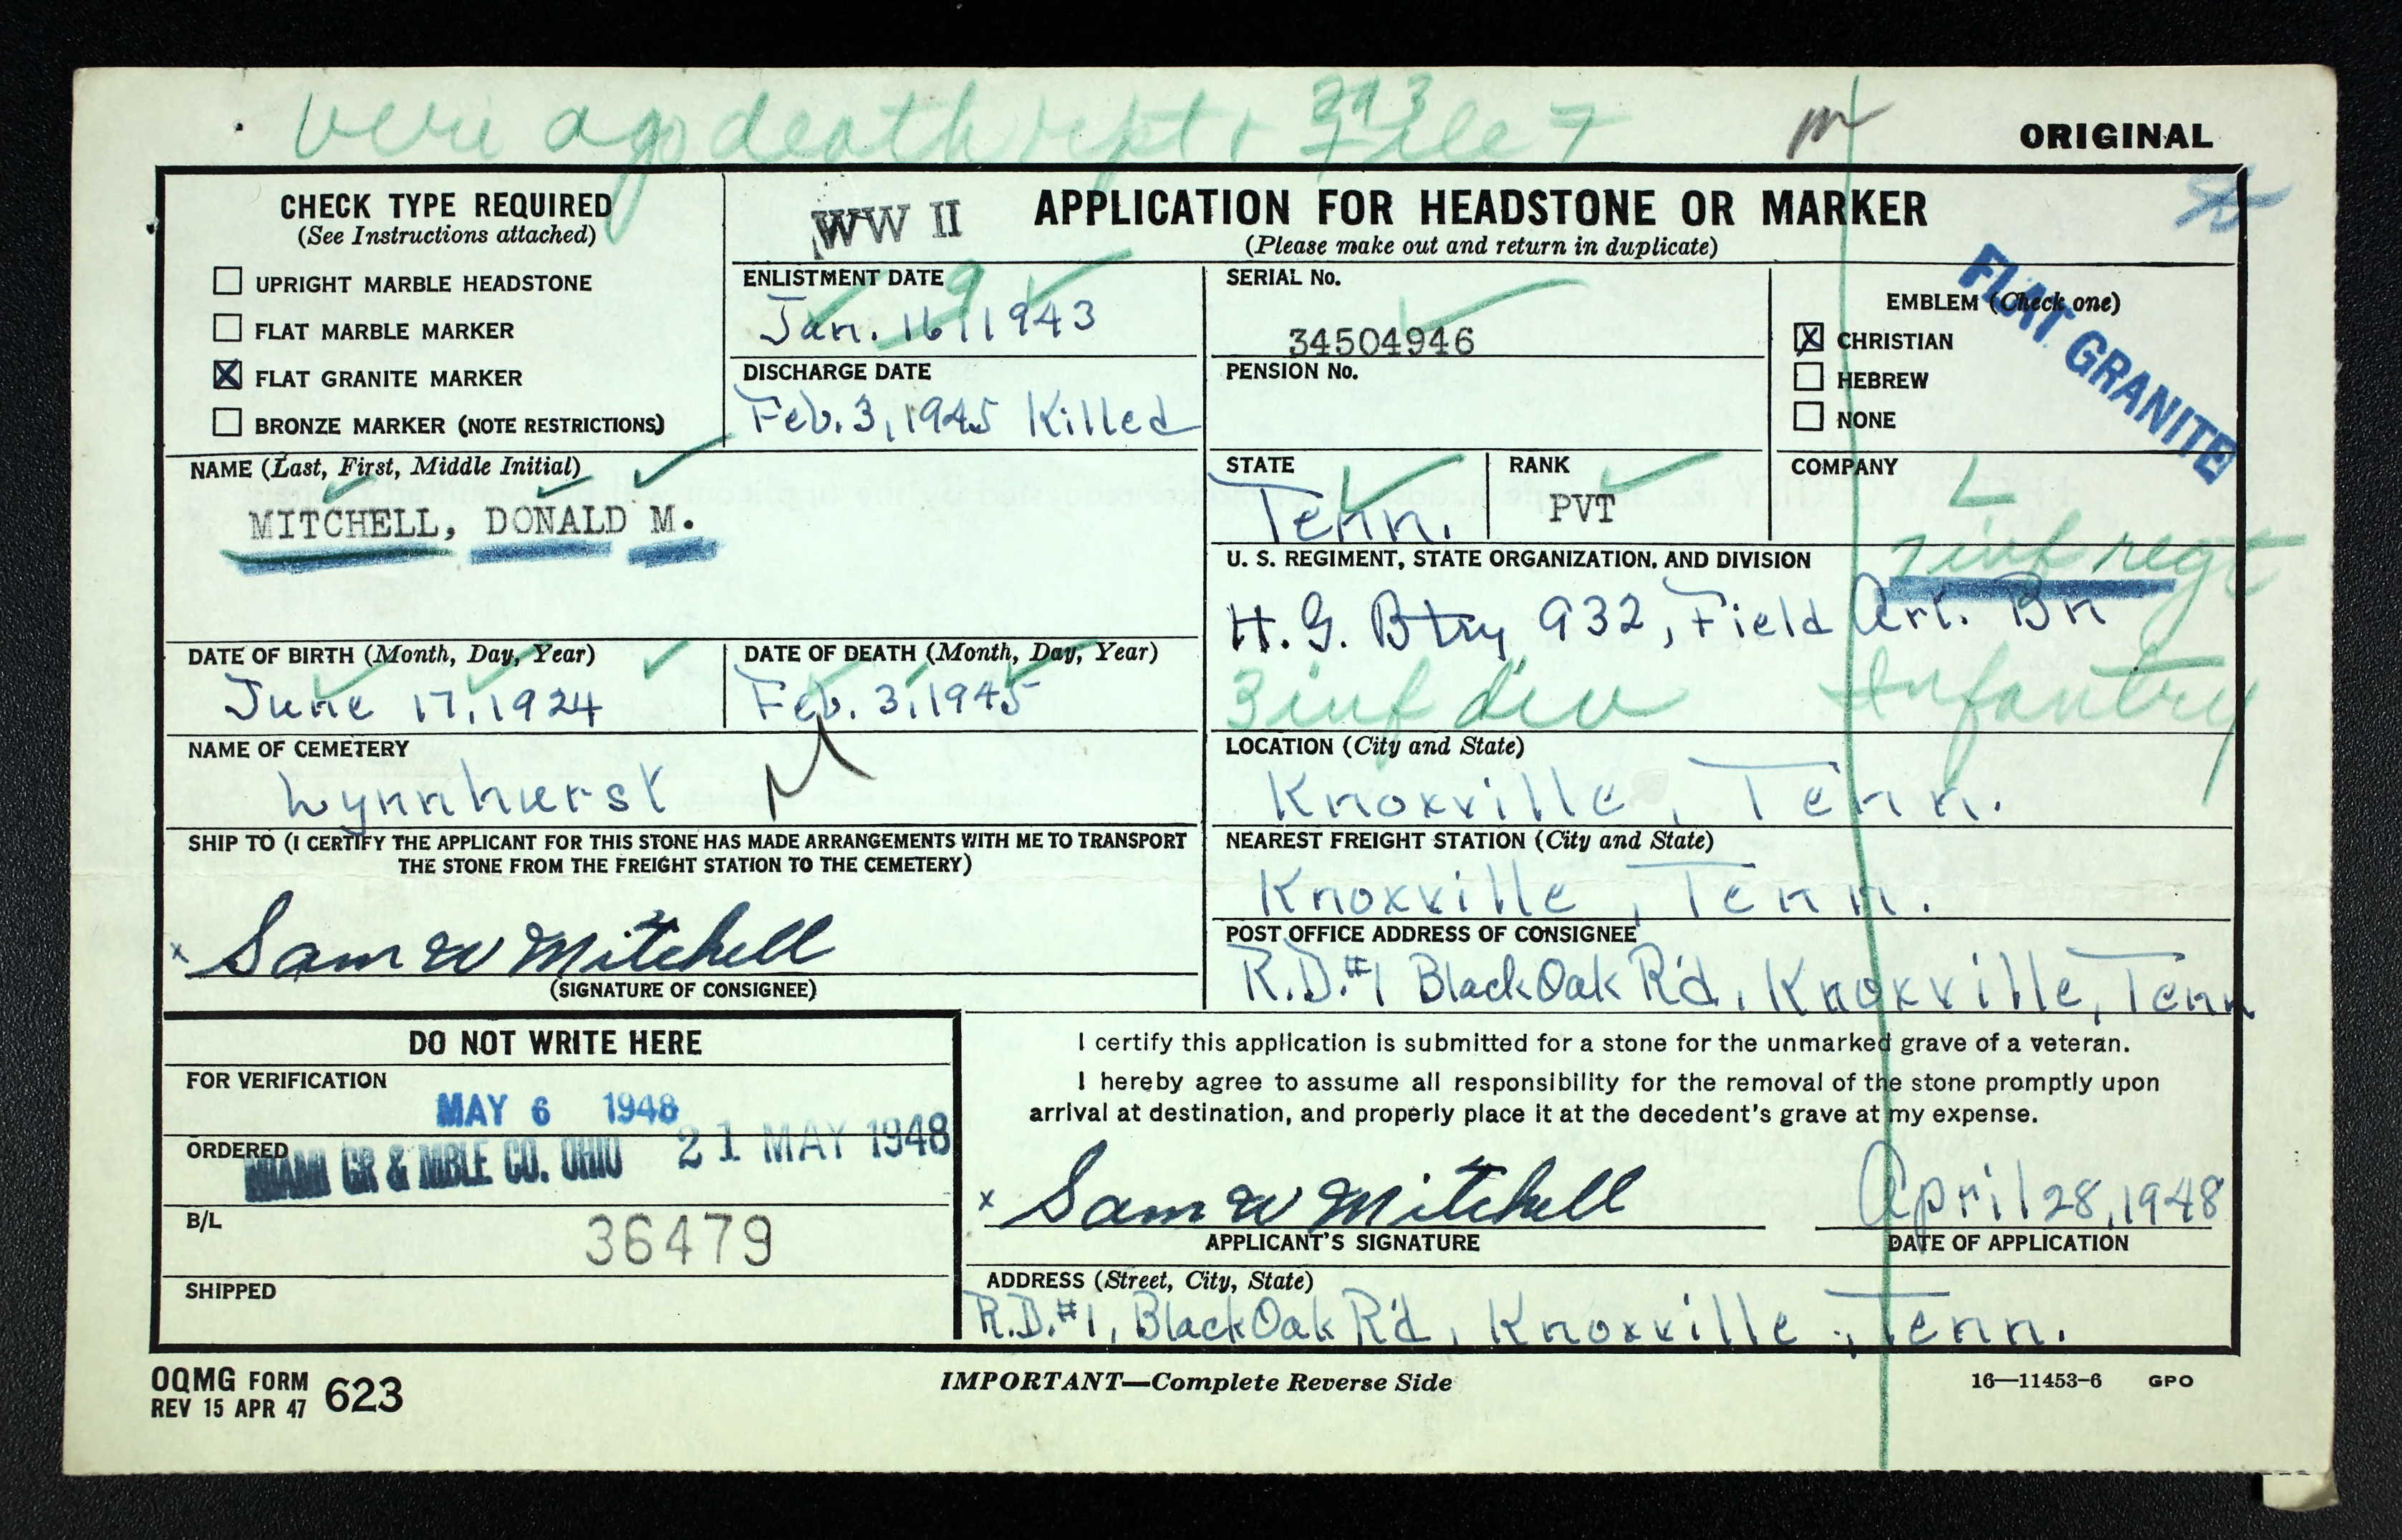 veri ago death rept + 293 File 7
ORIGINAL
CHECK TYPE REQUIRED
(See Instructions attached)
UPRIGHT MARBLE HEADSTONE
FLAT MARBLE MARKER
X FLAT GRANITE MARKER
BRONZE MARKER (NOTE RESTRICTIONS)
WW II
APPLICATION FOR HEADSTONE OR MARKER
(Please make out and return in duplicate)
ENLISTMENT DATE
9
Jan. 16, 1943
DISCHARGE DATE
Feb. 3, 1945 Killed
SERIAL No.
34504946
PENSION No.
EMBLEM (Check one)
X CHRISTIAN
HEBREW
NONE
FLAT GRANITE
NAME (Last, First, Middle Initial)
MITCHELL, DONALD M.
STATE
Tenn.
RANK
PVT
COMPANY
L
U. S. REGIMENT, STATE ORGANIZATION, AND DIVISION
7 inf regt
H.G. Btry 932, Field Art. Bn
3 inf div Infantry
DATE OF BIRTH (Month, Day, Year)
June 17, 1924
DATE OF DEATH (Month, Day, Year)
Feb. 3, 1945
NAME OF CEMETERY
Lynnhurst
LOCATION (City and State)
Knoxville, Tenn.
SHIP TO (I CERTIFY THE APPLICANT FOR THIS STONE HAS MADE ARRANGEMENTS WITH ME TO TRANSPORT
THE STONE FROM THE FREIGHT STATION TO THE CEMETERY)
x Sam W Mitchell
(SIGNATURE OF CONSIGNEE)
NEAREST FREIGHT STATION (City and State)
Knoxville, Tenn.
POST OFFICE ADDRESS OF CONSIGNEE
R.D.#1 Black Oak R'd, Knoxville, Tenn
DO NOT WRITE HERE
FOR VERIFICATION
MAY 6 1948
ORDERED
MIAMI GR & MBLE CO. OHIO 21 MAY 1948
B/L
36479
SHIPPED
I certify this application is submitted for a stone for the unmarked grave of a veteran.
I hereby agree to assume all responsibility for the removal of the stone promptly upon
arrival at destination, and properly place it at the decedent's grave at my expense.
x Sam W Mitchell
APPLICANT'S SIGNATURE
April 28, 1948
DATE OF APPLICATION
ADDRESS (Street, City, State)
R.D.#1, Black Oak R'd, Knoxville, Tenn.
OQMG FORM 623
REV 15 APR 47
IMPORTANT—Complete Reverse Side
16—11453-6 GPO